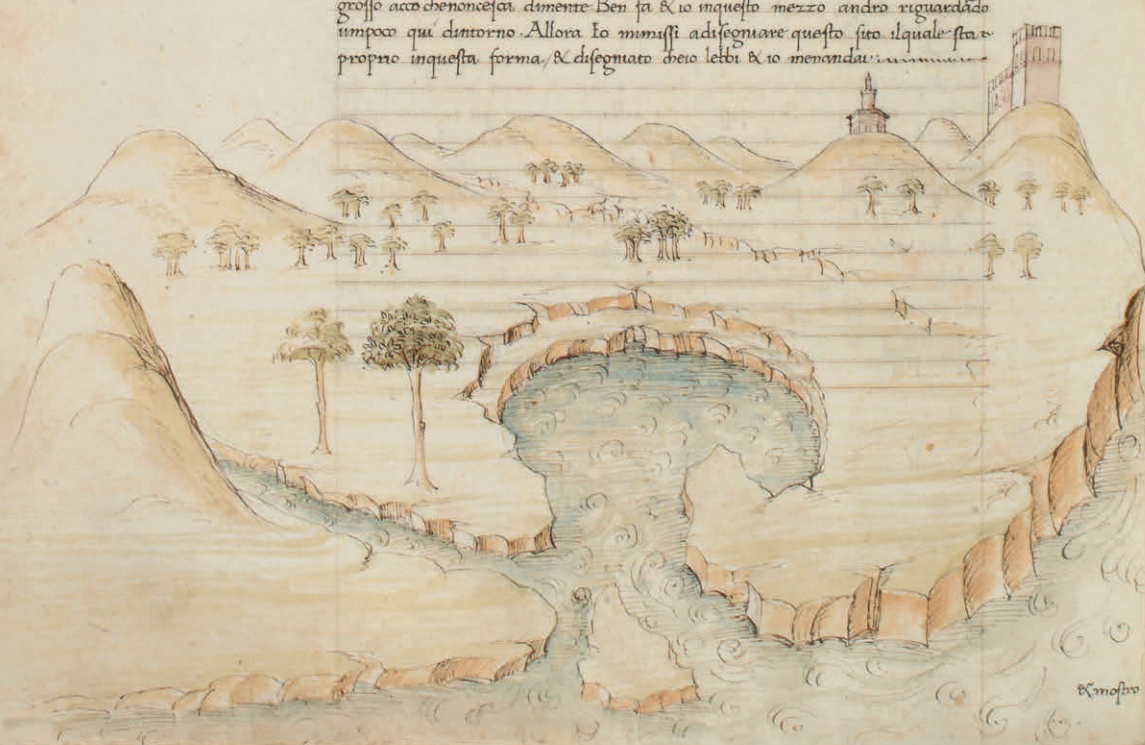 grosso acco chenoncesca dimente Ben fa & io inquesto mezzo andro riguardādo
umpoco qui dintorno. Allora Io mimissi adisegniare questo sito ilquale sta
proprio inquesta forma, & disegniato cheio lebbi & io menandai
& mostro